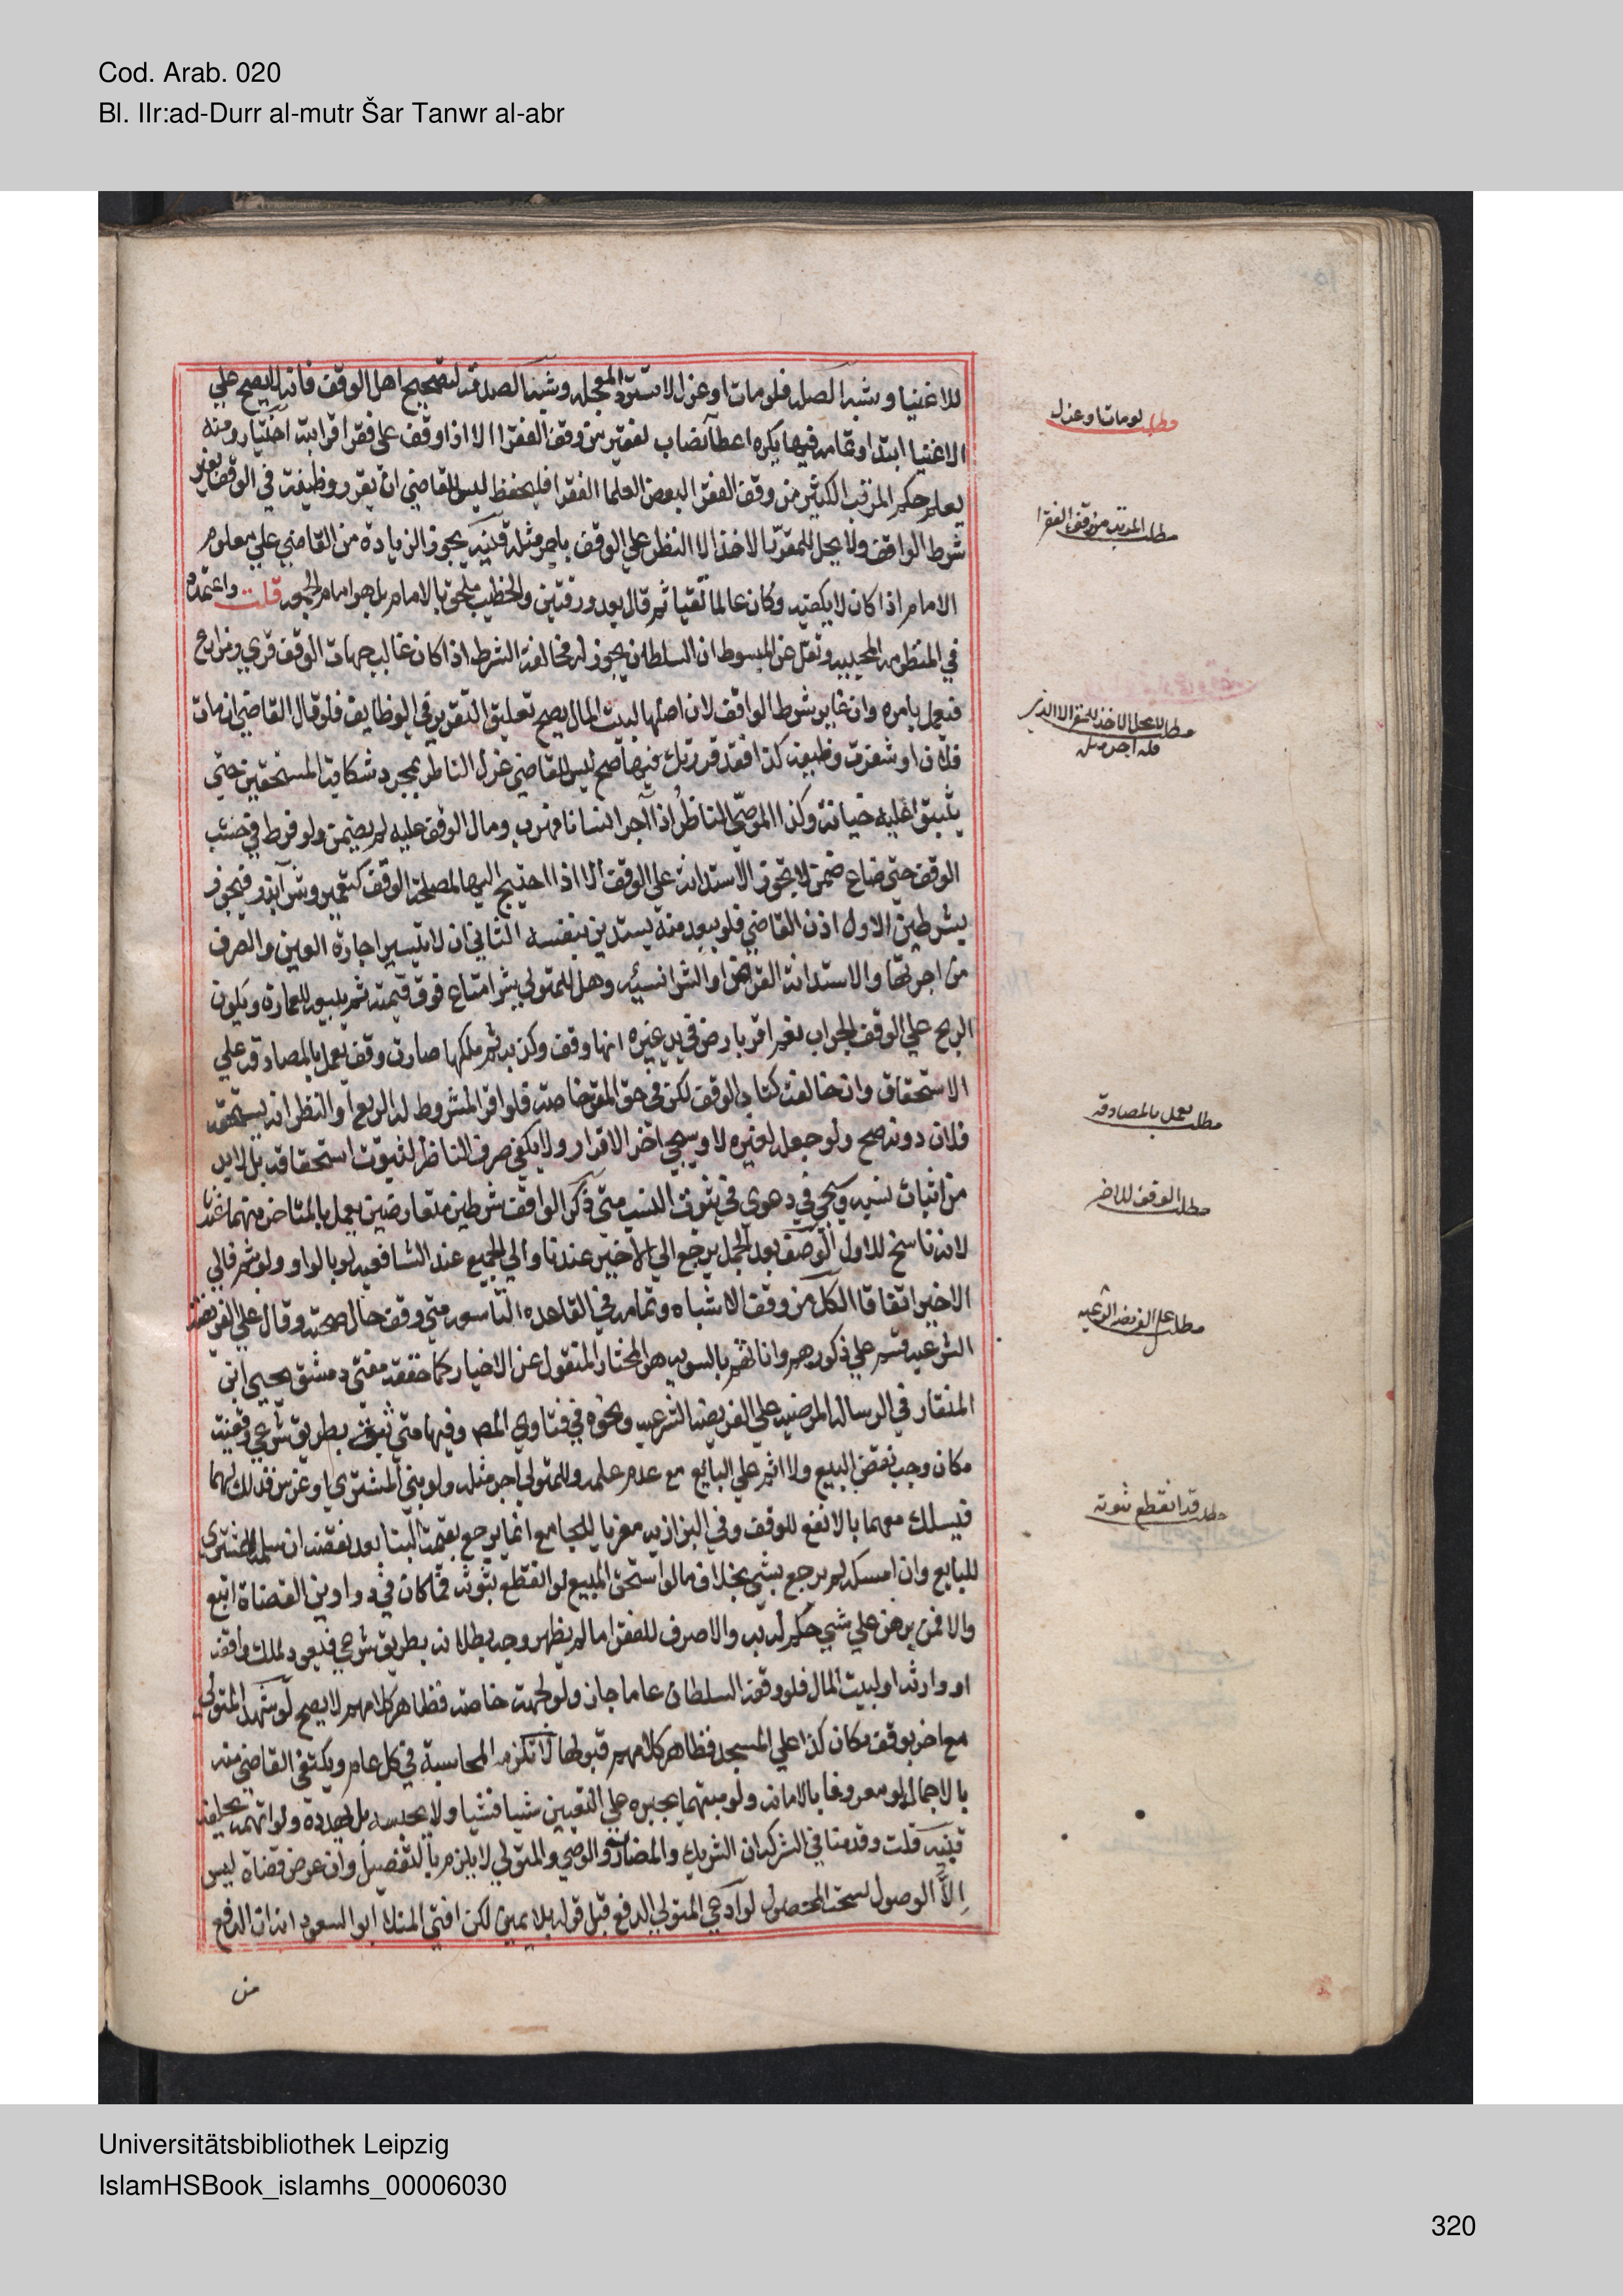 Cod. Arab. 020
Bl. IIr:ad-Durr al-mutr Šar Tanwr al-abr
للاغنيا وشبه الصله فلو مات او عزل لا تسترد المعجله وشبه الصدقة لتصحيح اصل الوقف فانه لا يصح على
الاغنيا ابتدا وتمامه فيها يكره اعطا نصاب لفقير من وقف الفقرا الا اذا وقف على فقرا قرابته اختيار ومنه
يعلم حكم المرتب الكثير من وقف الفقرا لبعض العلما الفقرا فليحفظ ليس للقاضي ان يقرر وظيفة في الوقف بغير
شرط الواقف ولا يحل للمقرر الاخذ الا النظر على الوقف باجر مثله قنيه يجوز الزيادة من القاضي على معلوم
الامام اذا كان لا يكفيه وكان عالما تقيا ثم قال بعد ورقتين والخطيب ملحق بالامام بل هو امام الجمعه قلت واعتمده
في المنظومه المحبيه ونقل عن المبسوط ان السلطان يجوز له مخالفة الشرط اذا كان غالب جهات الوقف قري ومزارع
فيعمل بامره وان غاير شرط الواقف لان اصلها لبيت المال يصح تعليق التقرير في الوظايف فلو قال القاضي ان مات
فلان او شغرت وظيفة كذا فقد قررتك فيها صح ليس للقاضي عزل الناظر بمجرد شكاية المستحقين حتى
يثبتوا عليه خيانة وكذا الموصى الناظر اذا آجر انسانا فهرب ومال الوقف عليه لم يضمن ولو فرط في خشب
الوقف حتى ضاع ضمن لا تجوز الاستدانة على الوقف الا اذا احتيج اليها لمصلحة الوقف كتعمير وشرا بذر فيجوز
بشرطين الاول اذن القاضي فلو ببعد منه يستدين بنفسه الثاني ان لا يتيسر اجارة العين والصرف
من اجرتها والاستدانة القرض او الشرا نسيئه وهل للمتولي شرا متاع فوق قيمته ثم يبيعه للعمارة ويكون
الربح على الوقف الجواب نعم اقر بارض في يد غيره انها وقف وكذبه ثم ملكها صارت وقف يعمل بالمصادقة على
الاستحقاق وان خالفت كتاب الوقف لكن في حق المقر خاصة فلو اقر المشروط له الريع او النظر انه يستحقه
فلان دونه صح ولو جعله لغيره لا وسيجي اخر الاقرار ولا يكفي صرف الناظر لثبوت استحقاقه بل لا بد
من اثبات نسبه ويجي في دعوى في ثبوت النسب متى ذكر الواقف شرطين متعارضين يعمل بالمتاخر منهما عندنا
لانه ناسخ للاول الوصف بعد الجمل يرجع الى الاخير عندنا والى الجميع عند الشافعيه لو بالواو ولو بثم فالى
الاخير اتفاقا الكل من وقف الاشباه وتمامه في القاعده التاسعه متى وقف حال صحته وقال على الفريضة
الشرعيه قسم على ذكورهم واناثهم بالسويه هو المختار المنقول عن الاخيار كما حققه مفتى دمشق يحيى ابن
المنقار في الرساله المرضيه على الفريضة الشرعيه ونحوه في فتاوي المصـ وفيها متى ثبت بطريق شرعي وقفية
مكان وجب نقض البيع ولا اثم على البايع مع عدم علمه وللمتولي اجر مثله ولو بنى المشتري او غرس فذلك لهما
فيسلك معهما بالانفع للوقف وفي البزازيه معزيا للجامع انما يرجع بقيمة البنا بعد نقضه ان سلم المشتري
للبايع وان امسكه لم يرجع بشي بخلاف ما لو استحق المبيع لو انقطع ثبوته فما كان في دواوين القضاة اتبع
والا فمن برهن على شي حكم له به والا صرف للفقرا ما لم يظهر وجه بطلانه بطريق شرعي فيعود لملك واقفه
او وارثه او لبيت المال فلو وقفه السلطان عاما جاز ولو لجهة خاصة فظاهر كلامهم لا يصح لو شهد المتولي
مع اخر بوقف مكان كذا على المسجد فظاهر كلامهم قبولها لا تلزمه المحاسبة في كل عام ويكتفى القاضي منه
بالاجمال لو معروفا بالامانه ولو متهما يجبره على التعيين شيا فشيا ولا يحبسه بل يهدده ولو اتهمه يحلفه
قنيه قلت وقدمنا في الشركه ان الشريك والمضارب والوصي والمتولي لا يلزم بالتفصيل وان غرض قضاة ليس
الا الوصول لسحت المحصول لو ادعى المتولي الدفع قبل قوله بلا يمين لكن افتى المنلا ابو السعود انه ان الدفع
من
مطلب لو مات او عزل
مطلب المرتب من وقف الفقرا
مطلب لا يحل الاخذ للمقرر الا الناظر
فله اجر مثل
مطلب يعمل بالمصادقه
مطلب الوقف
مطلب على الفريضه الشرعيه
مطلب قد انقطع ثبوته
Universitätsbibliothek Leipzig
IslamHSBook_islamhs_00006030
320